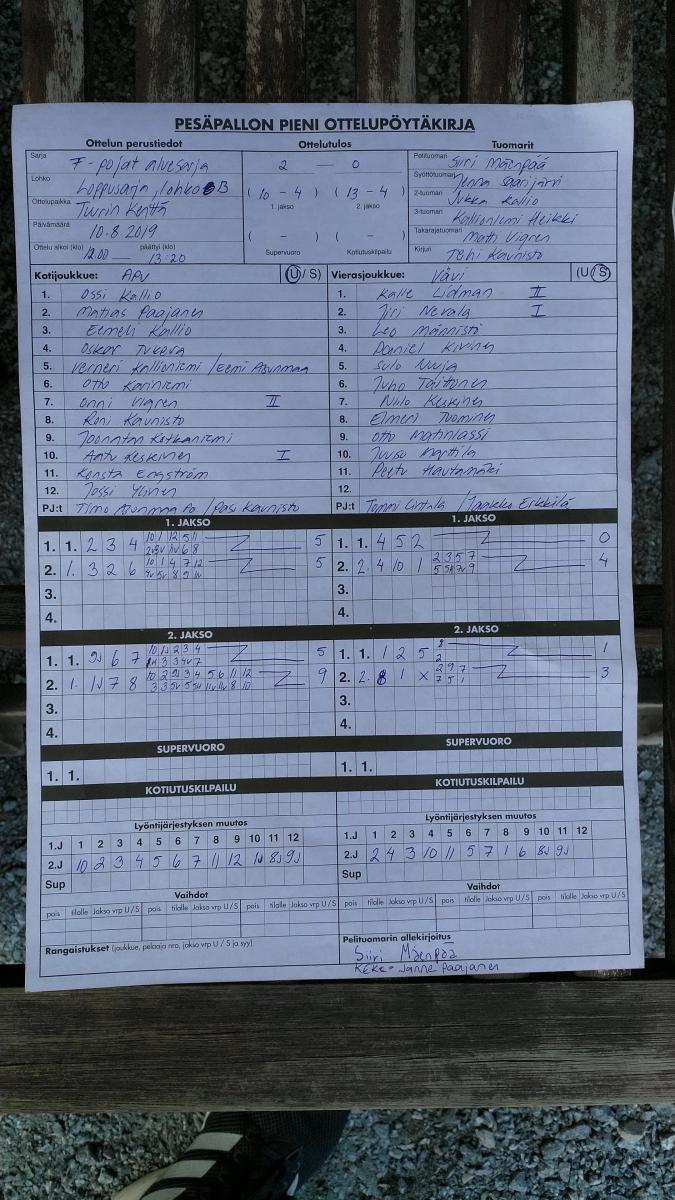 PESÄPALLON PIENI OTTELUPÖYTÄKIRJA
Ottelun perustiedot Ottelutulos Tuomarit
Sarja F-pojat aluesarja
Lohko Loppusarja, lohko B
Ottelupaikka Tuurin Kenttä
Päivämäärä 10.8.2019
Ottelu alkoi (klo) 12.00 päättyi (klo) 13:20
2 — 0
( 10 - 4 ) ( 13 - 4 )
1. jakso 2. jakso
( - ) ( - )
Supervuoro Kotiutuskilpailu
Pelituomari Siiri Mäenpää
Syöttötuomari Jenna Saarijärvi
2-tuomari Jukka Kallio
3-tuomari Kallioniemi Heikki
Takarajatuomari Matti Vigren
Kirjuri Tehi Kaunisto
Kotijoukkue: APV (U / S)
1. Ossi Kallio
2. Matias Paajanen
3. Eemeli Kallio
4. Oskar Tukeva
5. Verneri Kallioniemi / Eemi Asunmaa
6. Otto Kariniemi
7. Onni Vigren II
8. Roni Kaunisto
9. Joonatan Kotkaniemi
10. Aatu Keskinen I
11. Konsta Engström
12. Jossi Ylinen
PJ:t Timo Asunmaa / Pasi Kaunisto
Vierasjoukkue: Vävi (U / S)
1. Kalle Lidman II
2. Jiri Nevala I
3. Leo Männistö
4. Daniel Kivinen
5. Sulo Nuja
6. Juho Taittonen
7. Niilo Keskinen
8. Elmeri Tuominen
9. Otto Matinlassi
10. Juuso Marttila
11. Peetu Hautamäki
12.
PJ:t Tommi / Jaakko Erkkilä
1. JAKSO
1. 1. 2 3 4 5
2. 1. 3 2 6 5
3.
4.
1. JAKSO
1. 1. 4 5 2 0
2. 2. 4 10 1 4
3.
4.
2. JAKSO
1. 1. 9J 6 7 5
2. 1. 1J 7 8 9
3.
4.
2. JAKSO
1. 1. 1 2 5 1
2. 2. 8 1 X 3
3.
4.
SUPERVUORO
1. 1.
SUPERVUORO
1. 1.
KOTIUTUSKILPAILU
KOTIUTUSKILPAILU
Lyöntijärjestyksen muutos
1.J 1 2 3 4 5 6 7 8 9 10 11 12
2.J 10 2 3 4 5 6 7 11 12 1J 8J 9J
Sup
Lyöntijärjestyksen muutos
1.J 1 2 3 4 5 6 7 8 9 10 11 12
2.J 2 4 3 10 11 5 7 1 6 8J 9J
Sup
Vaihdot
pois tilalle Jakso vrp U / S pois tilalle Jakso vrp U / S pois tilalle Jakso vrp U / S
Vaihdot
pois tilalle Jakso vrp U / S pois tilalle Jakso vrp U / S pois tilalle Jakso vrp U / S
Rangaistukset (joukkue, pelaaja nro, jakso vrp U / S ja syy)
Pelituomarin allekirjoitus
Siiri Mäenpää
Janne Paajanen